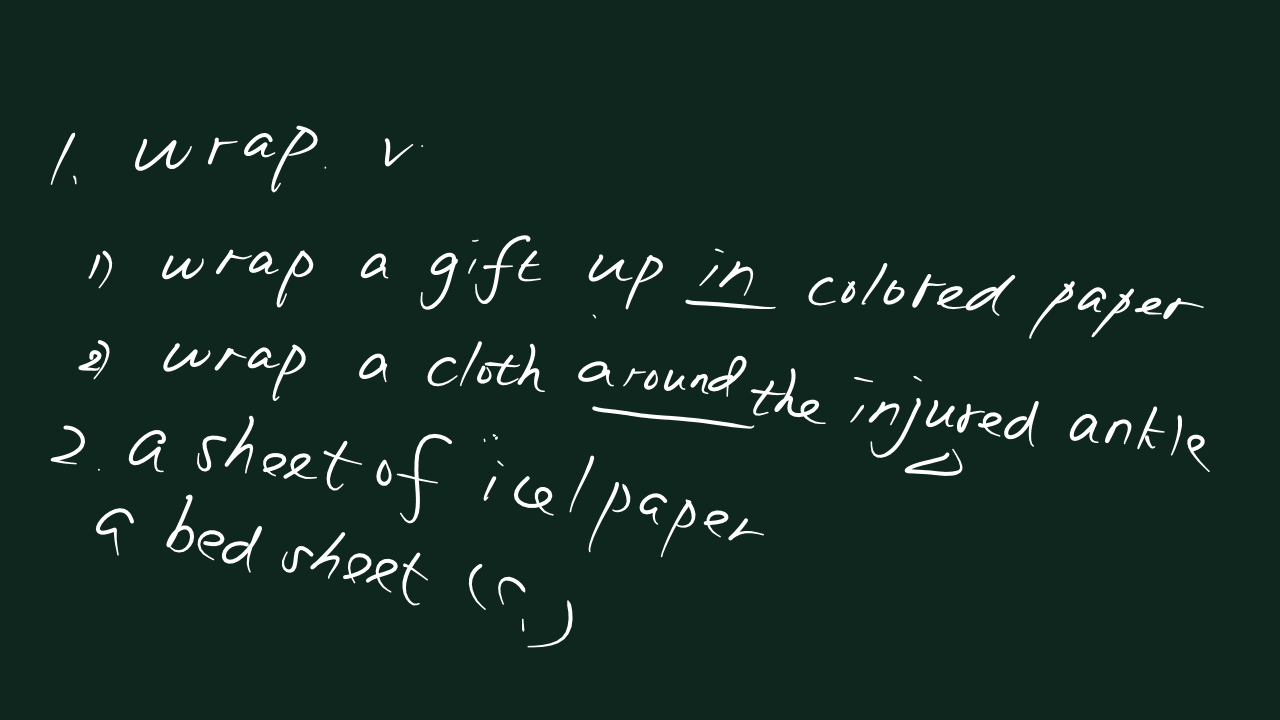 1. wrap. v.
1) wrap a gift up in colored paper
2) wrap a cloth around the injured ankle
2. a sheet of ice/paper
a bed sheet (n.)